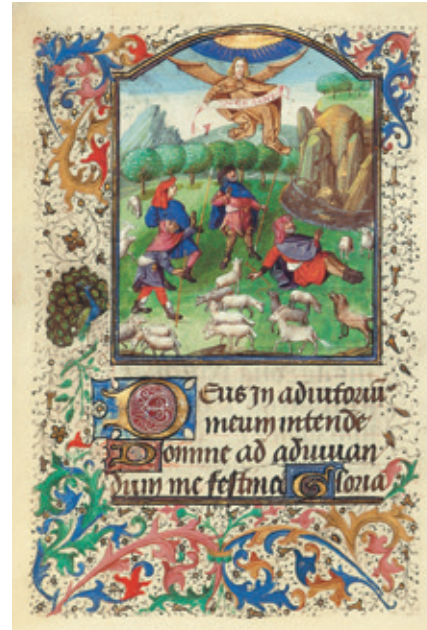 Deus in adiutoriū
meum intende
Domine ad adiuuan
dum me festina Gloria